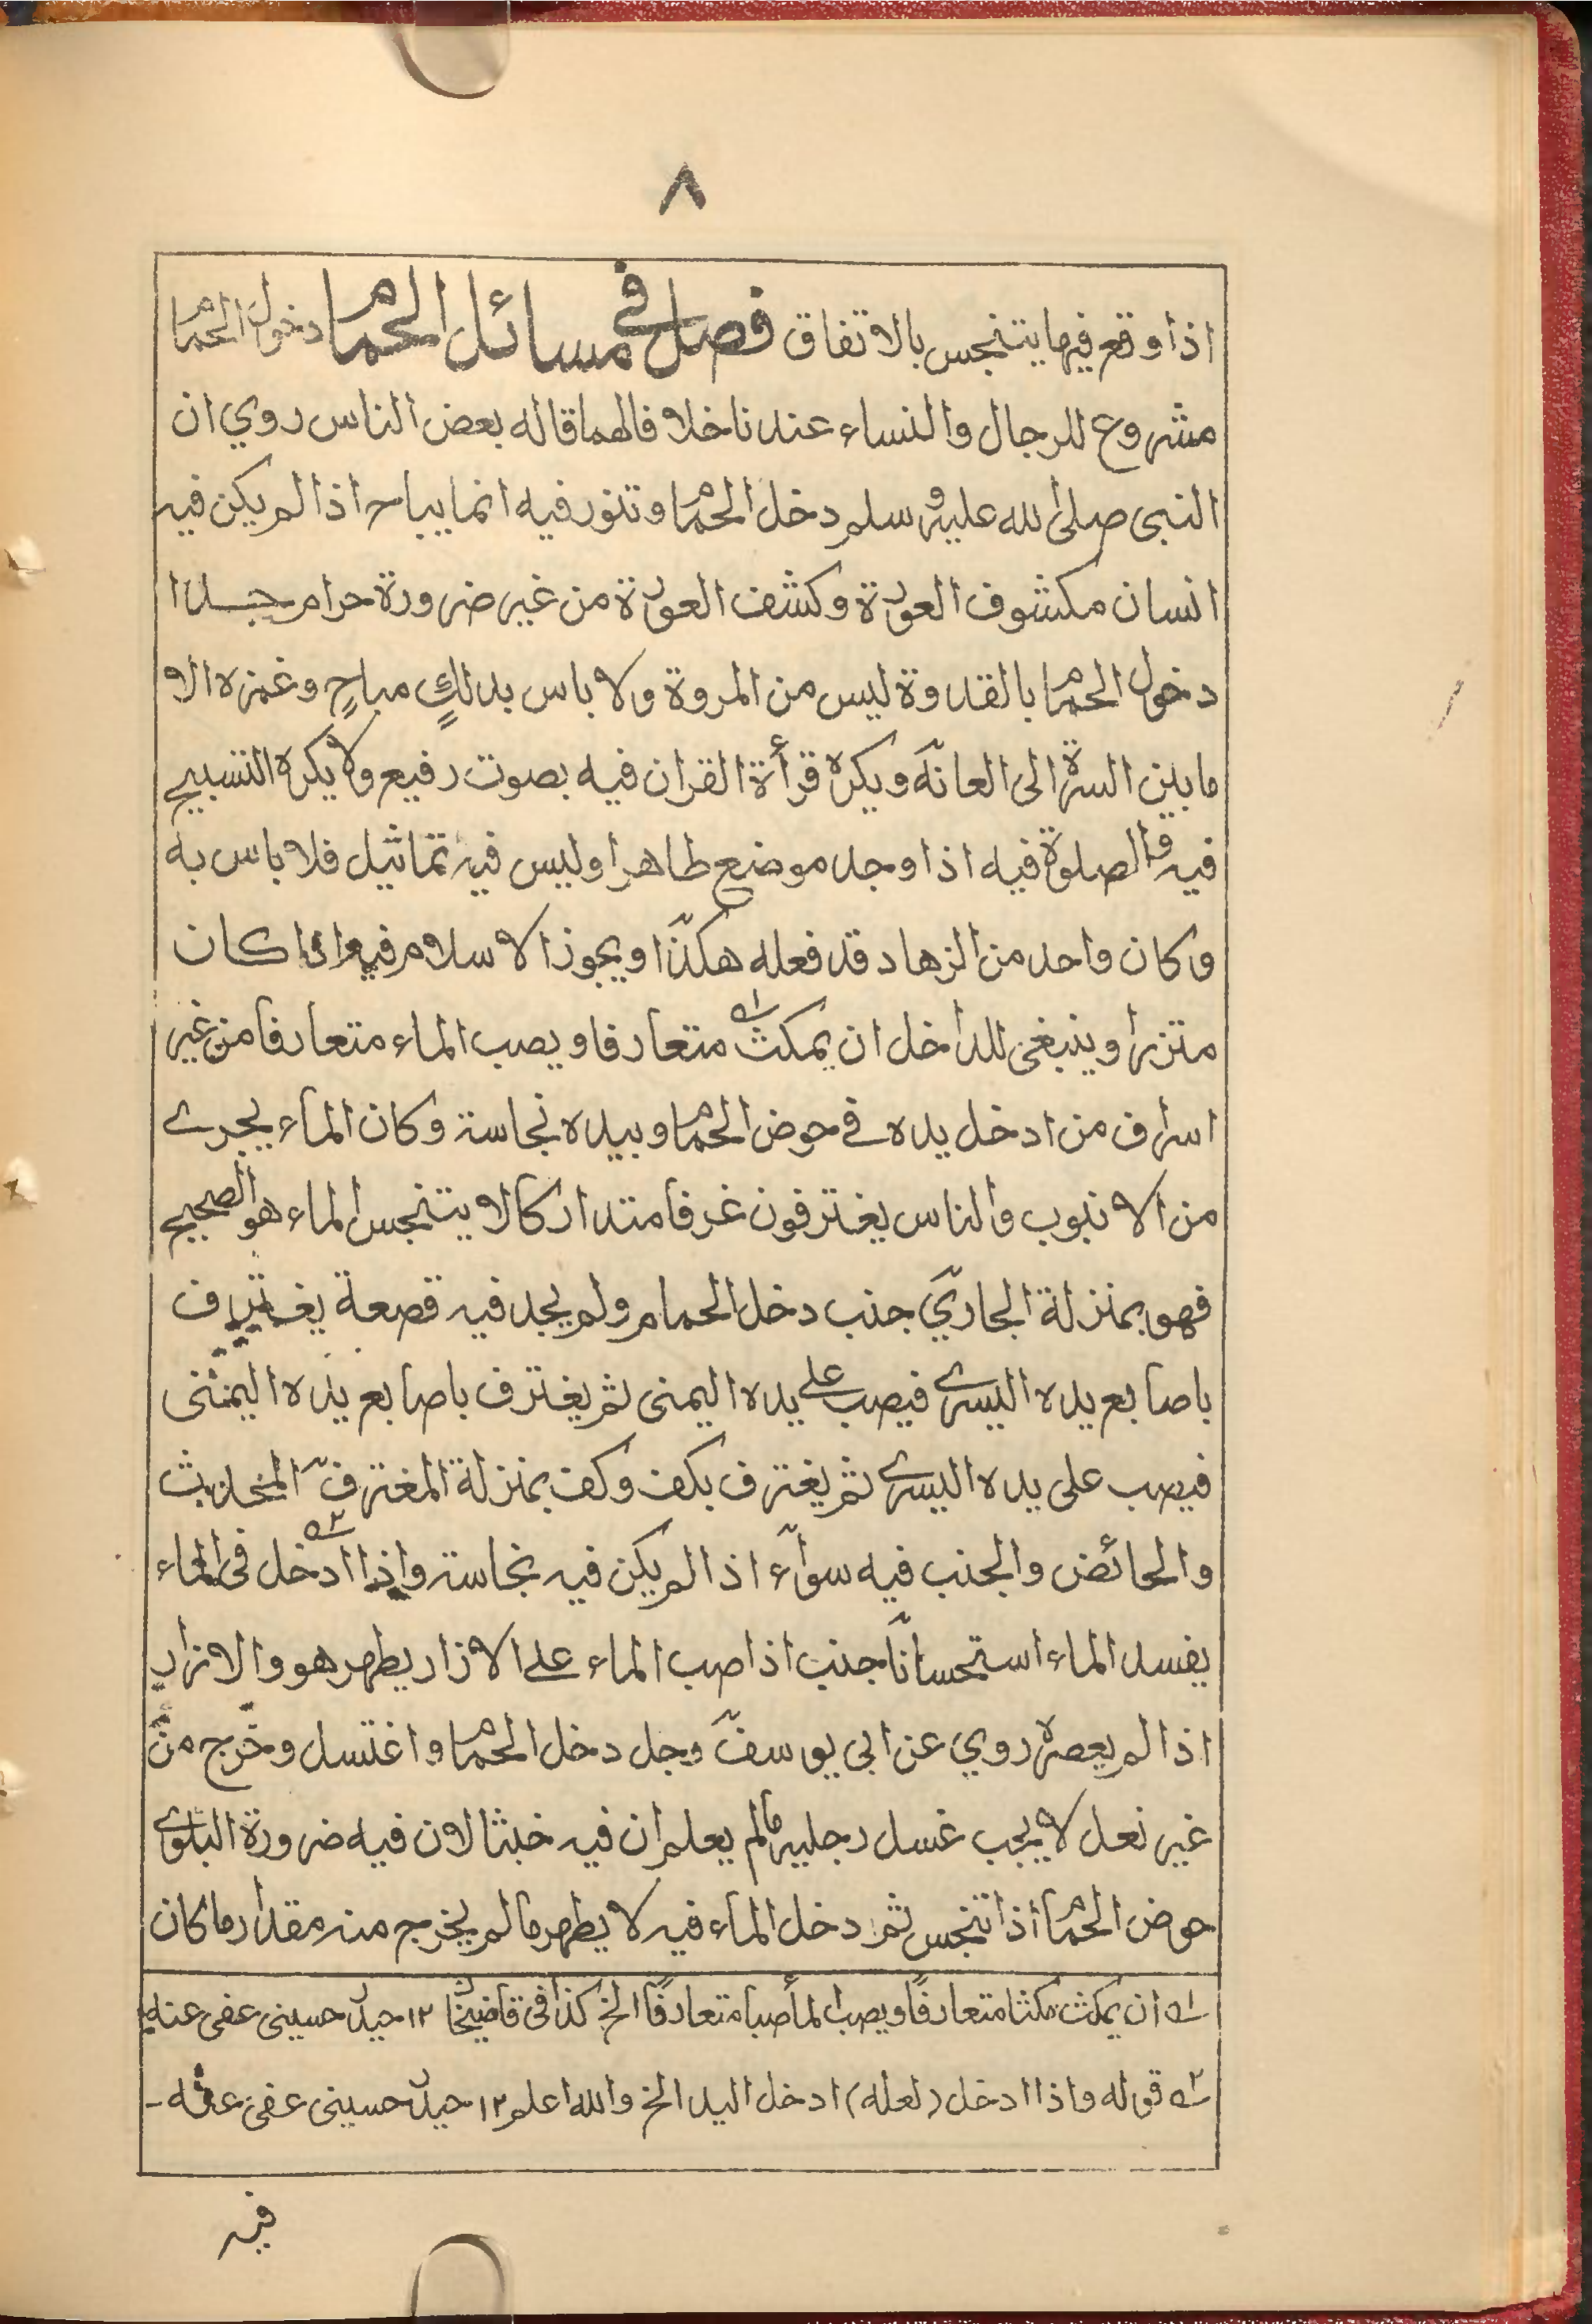 ٨
اذا وقع فيها يتنجس بالاتفاق فصل في مسائل الحمام دخول الحمام
مشروع للرجال والنساء عندنا خلافا لهما قاله بعض الناس روي ان
النبى صلى الله عليه وسلم دخل الحمام وتنور فيه انما يباح اذا لم يكن فيه
انسان مكشوف العورة وكشف العورة من غير ضرورة حرام جدا
دخول الحمام بالقدوة ليس من المروة ولا باس بدلكٍ مباحٍ وغمزه الا
ما بين السرة الى العانة ويكره قرأة القران فيه بصوت رفيع ولا يكره التسبيح
فيه والصلوة فيه اذا وجد موضع طاهرا وليس فيه تماثيل فلا باس به
وكان واحد من الزهاد قد فعله هكذا ويجوز الاسلام فيه اذا كان
متزرا وينبغى للداخل ان يمكث متعارفا ويصب الماء متعارفا من غير
اسراف من ادخل يده فى حوض الحمام وبيده نجاسة وكان الماء يجرى
من الانبوب والناس يغترفون غرفا متداركا لا يتنجس الماء هو الصحيح
فهو بمنزلة الجاري جنب دخل الحمام ولم يجد فيه قصعة يغترف
باصابع يده اليسرى فيصب على يده اليمنى ثم يغترف باصابع يده اليمنى
فيصب على يده اليسرى ثم يغترف بكف وكف بمنزلة المغترف المحدث
والحائض والجنب فيه سواء اذا لم يكن فيه نجاسة واذا ادخل فى الماء
يفسد الماء استحسانا جنب اذا صب الماء على الازار يطهر هو والازار
اذا لم يعصره روي عن ابى يوسف رجل دخل الحمام واغتسل وخرج من
غير نعل لا يجب غسل رجليه مالم يعلم ان فيه خبثا لان فيه ضرورة البلوى
حوض الحمام اذا تنجس ثم دخل الماء فيه لا يطهر ما لم يخرج منه مقدار ما كان
١ ان يمكث مكثا متعارفًا ويصب الماء صبا متعارفًا الخ كذا فى قاضيخان ١٢ حيدر حسينى عفى عنه
٢ قوله واذا ادخل (لعله) ادخل اليد الخ والله اعلم ١٢ حيدر حسينى عفى عنه -
فيه